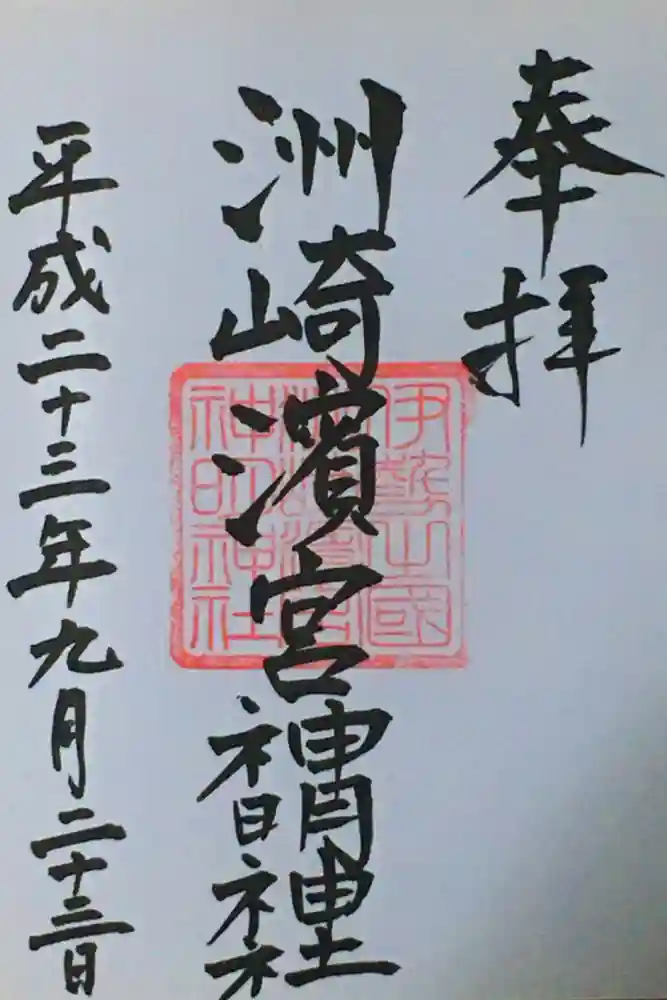 奉拝
洲崎濱宮神明神社
平成二十三年九月二十三日
伊勢之國
洲崎濱宮
神明神社